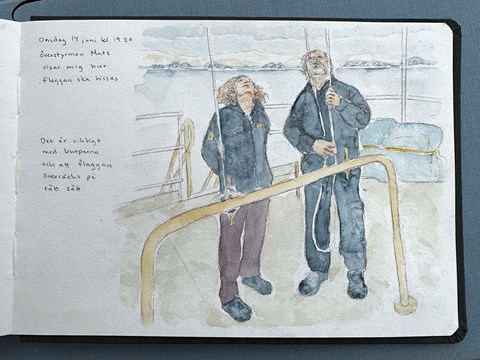 Onsdag 14 juni kl 19.20
överstyrman Mats
visar mig hur
flaggan ska hissas
Det är viktigt
med knoparna
och att flaggan
överräcks på
rätt sätt